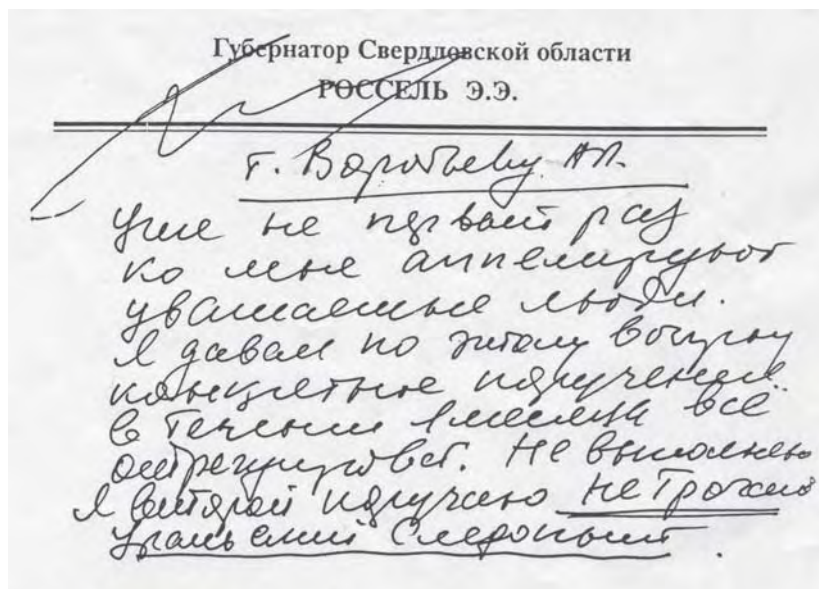 Губернатор Свердловской области
РОССЕЛЬ Э.Э.
т. Воробьеву А.П.
Уже не первый раз
ко мне аппелируют
уважаемые люди.
Я давал по этому вопросу
конкретные поручения.
в течении 1 месяца все
отрегулировать. Не выполнено
Я второй поручаю не трогать
Уральский Следопыт.